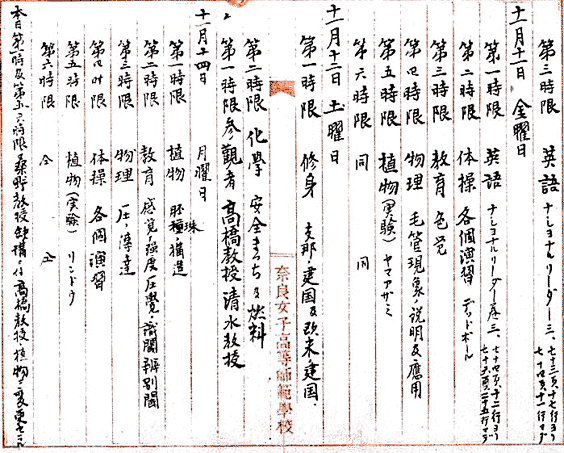 第三時限 英語 ナショナルリーダー三、七十三頁十七行ヨリ
七十四頁十一行マデ
十一月十一日 金曜日
第一時限 英語 ナショナルリーダー巻三、七十四頁十二行ヨリ
七十六頁二十五行マデ
第二時限 体操 各個演習 デッドボール
第三時限 教育 色覚
第四時限 物理 毛管現象ノ説明及應用
第五時限 植物(実験) ヤマアザミ
第六時限 同 同
十一月十二日 土曜日
第一時限 修身 支那ノ建国及欧米ノ建国
第二時限 化學 安全まっち及燃料
第一時限参観者 高橋教授 清水教授
十一月十四日 月曜日
第一時限 植物 胚珠ノ種類構造
第二時限 教育 感覚ノ強度 圧覚ノ識閾 辨別閾
第三時限 物理 圧ノ傳達
第四時限 体操 各個演習
第五時限 植物(実験) リンドウ
第六時限 仝 仝
本日第一時及第五六時限桑野教授缺講ニ付高橋教授ノ植物ニ変更セラル
奈良女子高等師範學校